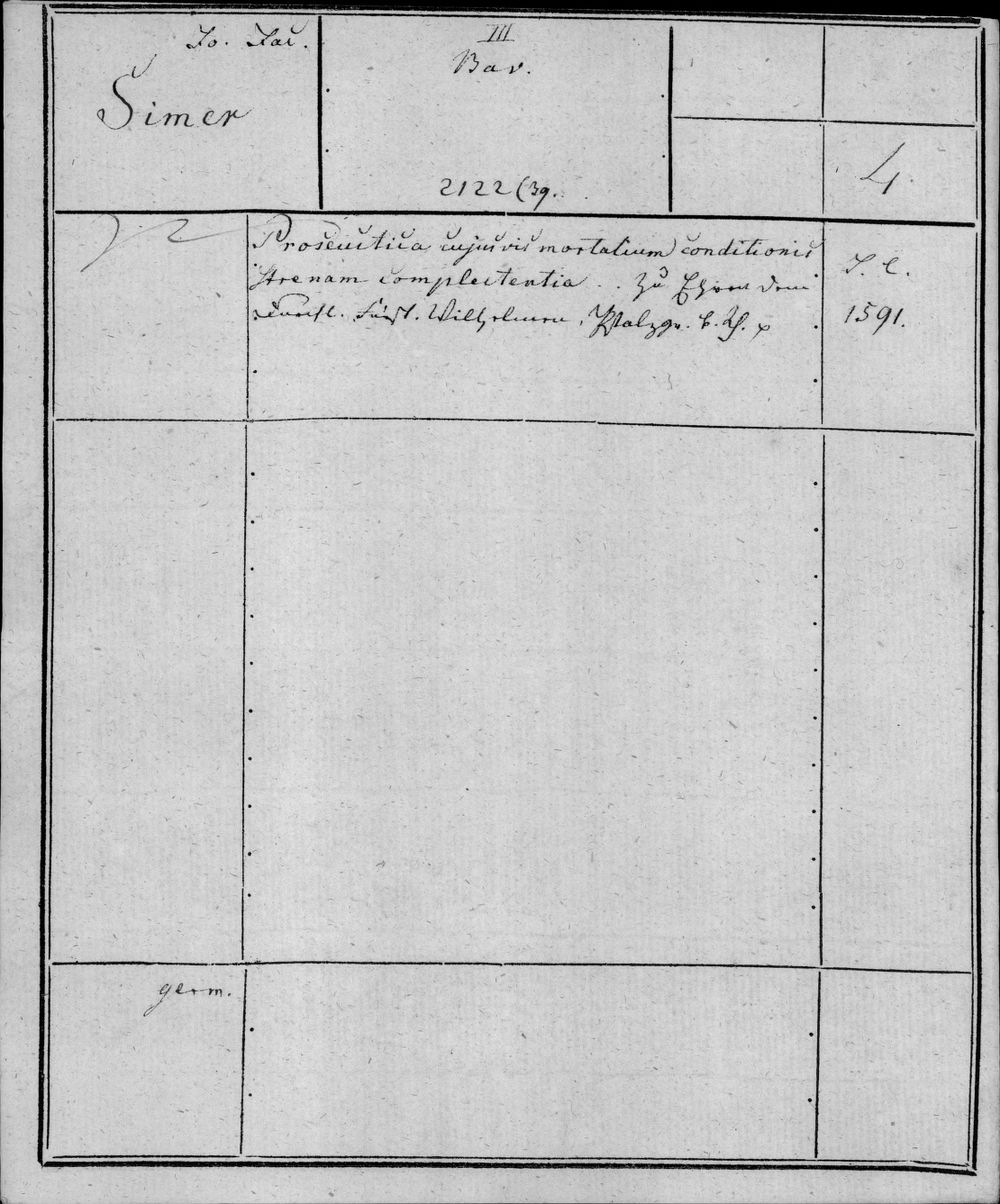 Jo. Jac.
Simer
III
Bav.
2122 (39.
4
Proseuctica cujusvis mortalium conditionis
strenam complectentia . . Zu Ehren dem
Fürst. Wilhelmen, Pfalzgr. b. Rh.
S. l.
1591.
germ.